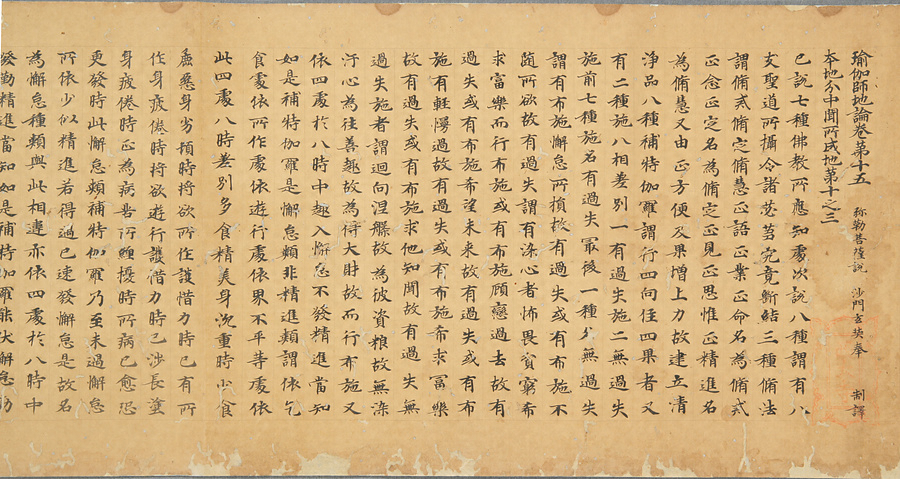 瑜伽師地論卷第十五 弥勒菩薩說 沙門玄奘奉 制譯
本地分中聞所成地第十之三
已說七種佛教所應知處次說八種謂有八
支聖道所攝令諸苾芻究竟斷結三種脩法
謂脩戒脩定脩慧正語正業正命名為脩戒
正念正定名為脩定正見正思惟正精進名
為脩慧又由正方便及果增上力故建立清
淨品八種補特伽羅謂行四向住四果者又
有二種施八相差別一有過失施二無過失
施前七種施名有過失最後一種名無過失
謂有布施懈怠所損故有過失或有布施不
随所欲故有過失謂有染心者怖畏貧窮希
求富樂而行布施或有布施顧戀過去故有
過失或有布施希望未來故有過失或有布
施有輕慢過故有過失或有布施希求富樂
故有過失或有布施求他知聞故有過失無
過失施者謂迴向涅槃故為彼資粮故無染
汙心為往善趣故為得大財故而行布施又
依四處於八時中趣入懈怠不發精進當知
如是補特伽羅是懈怠類非精進類謂依乞
食處依所作處依遊行處依界不平等處依
此四處八時差別多食精美身沉重時少食
麁惡身劣頓時將欲所作護惜力時已有所
作身疲倦時將欲遊行護惜力時已涉長塗
身疲倦時正為病苦所纏擾時所病已愈恐
更發時此懈怠類補特伽羅乃至未過懈怠
所依少似精進若得過已速發懈怠是故名
為懈怠種類與此相違亦依四處於八時中
發勤精進當知如是補特伽羅能伏懈怠